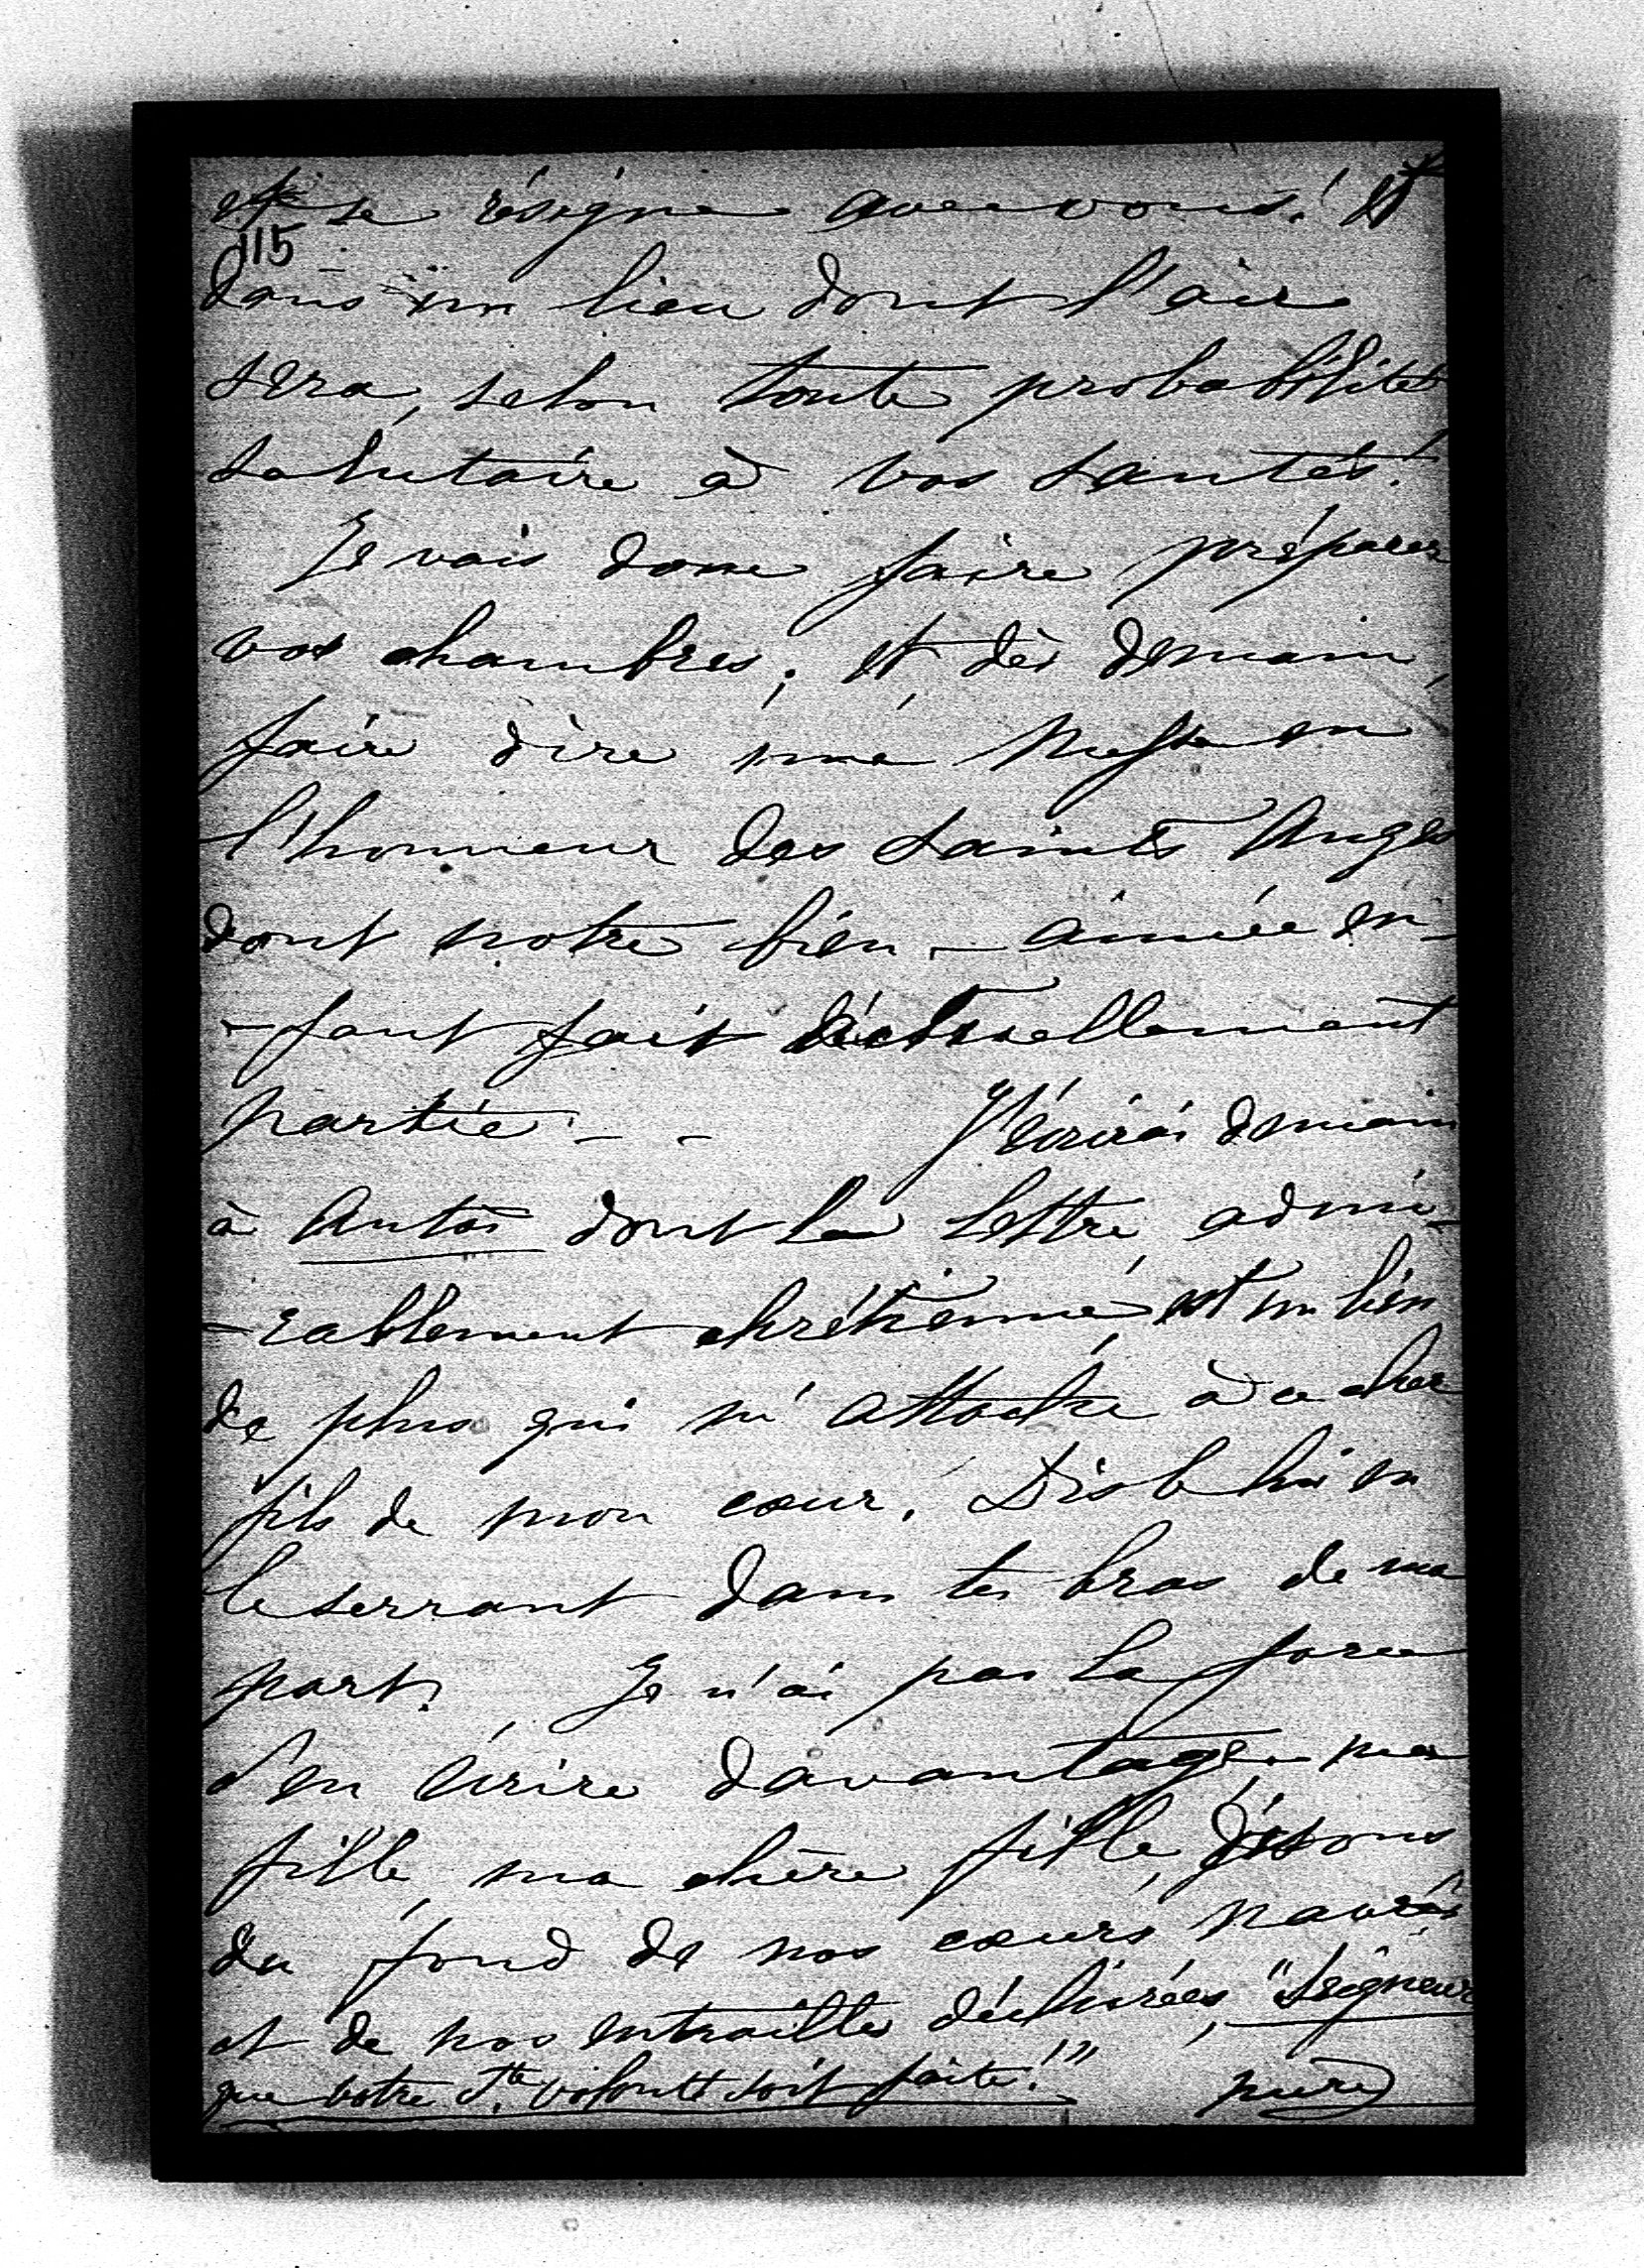 et se résigne avec vous! Et
115
dans un lieu dont l'air
sera, selon toute probabilité
salutaire à vos santés!
Je vais donc faire préparer
vos chambres; et, dès demain,
faire dire une Messe en
l'honneur des Saints Anges
dont notre bien-aimée en-
-fant fait actuellement
partie. - -  J'écrirai demain
à Antoi dont la lettre, admi-
-rablement chrétienne, est un lien
de plus qui m'attache à ce cher
fils de mon cœur. Dis le lui en
le serrant dans tes bras de ma
part. Je n'ai pas la force
d'en écrire davantage. ma
fille, ma chère fille, disons
du fond de nos cœurs navrés
et de nos entrailles déchirées, "Seigneur
que votre Ste volonté soit faite!"